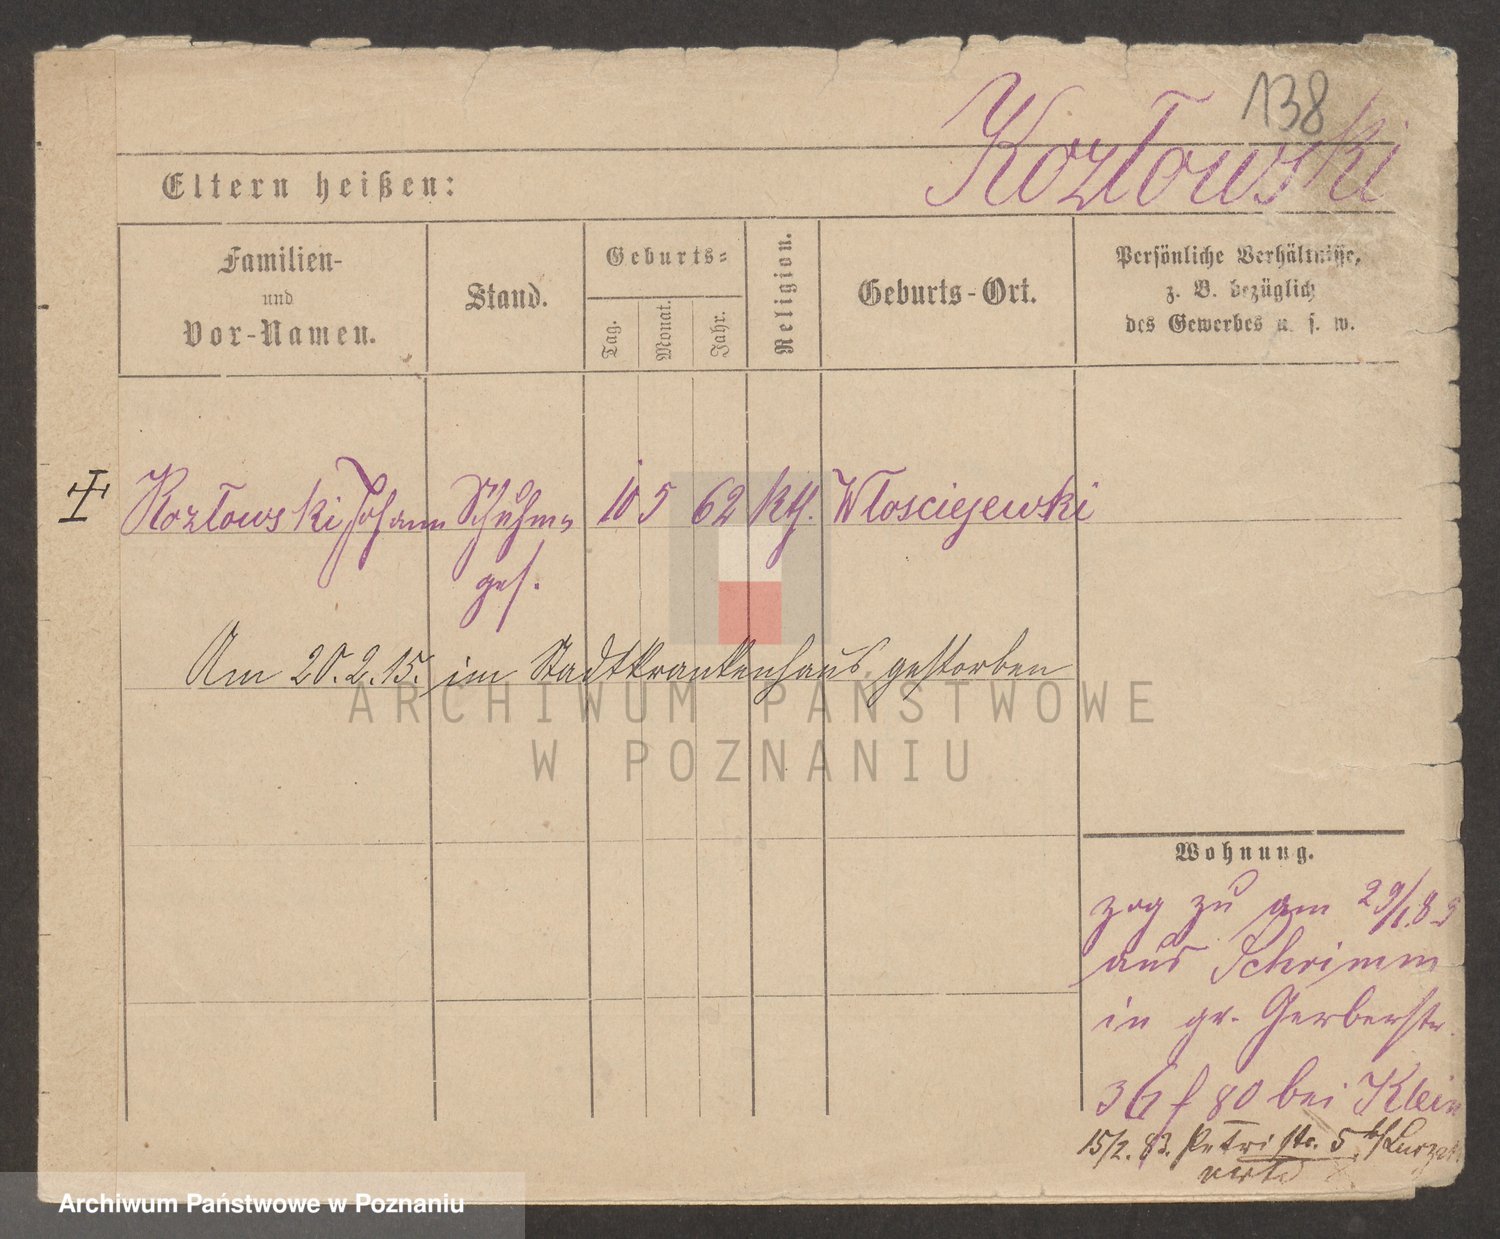 138
Kozłowski
Eltern heißen:
Familien-
und
Vor-Namen.
Stand.
Geburts-
Tag.
Monat.
Jahr.
Religion.
Geburts-Ort.
Persönliche Verhältnisse,
z. B. bezüglich
des Gewerbes u. s. w.
Kozłowski Johann Schuhm- 10 5 62 kth. Włosciejewki
ges.
Am 20.2.15. im Stadtkrankenhaus gestorben
ARCHIWUM PAŃSTWOWE
W POZNANIU
Wohnung.
zog zu am 29/1.83
aus Schrimm
in gr. Gerberstr.
36 f 80 bei Klein
15/2. 83. Petristr. 5
Archiwum Państwowe w Poznaniu